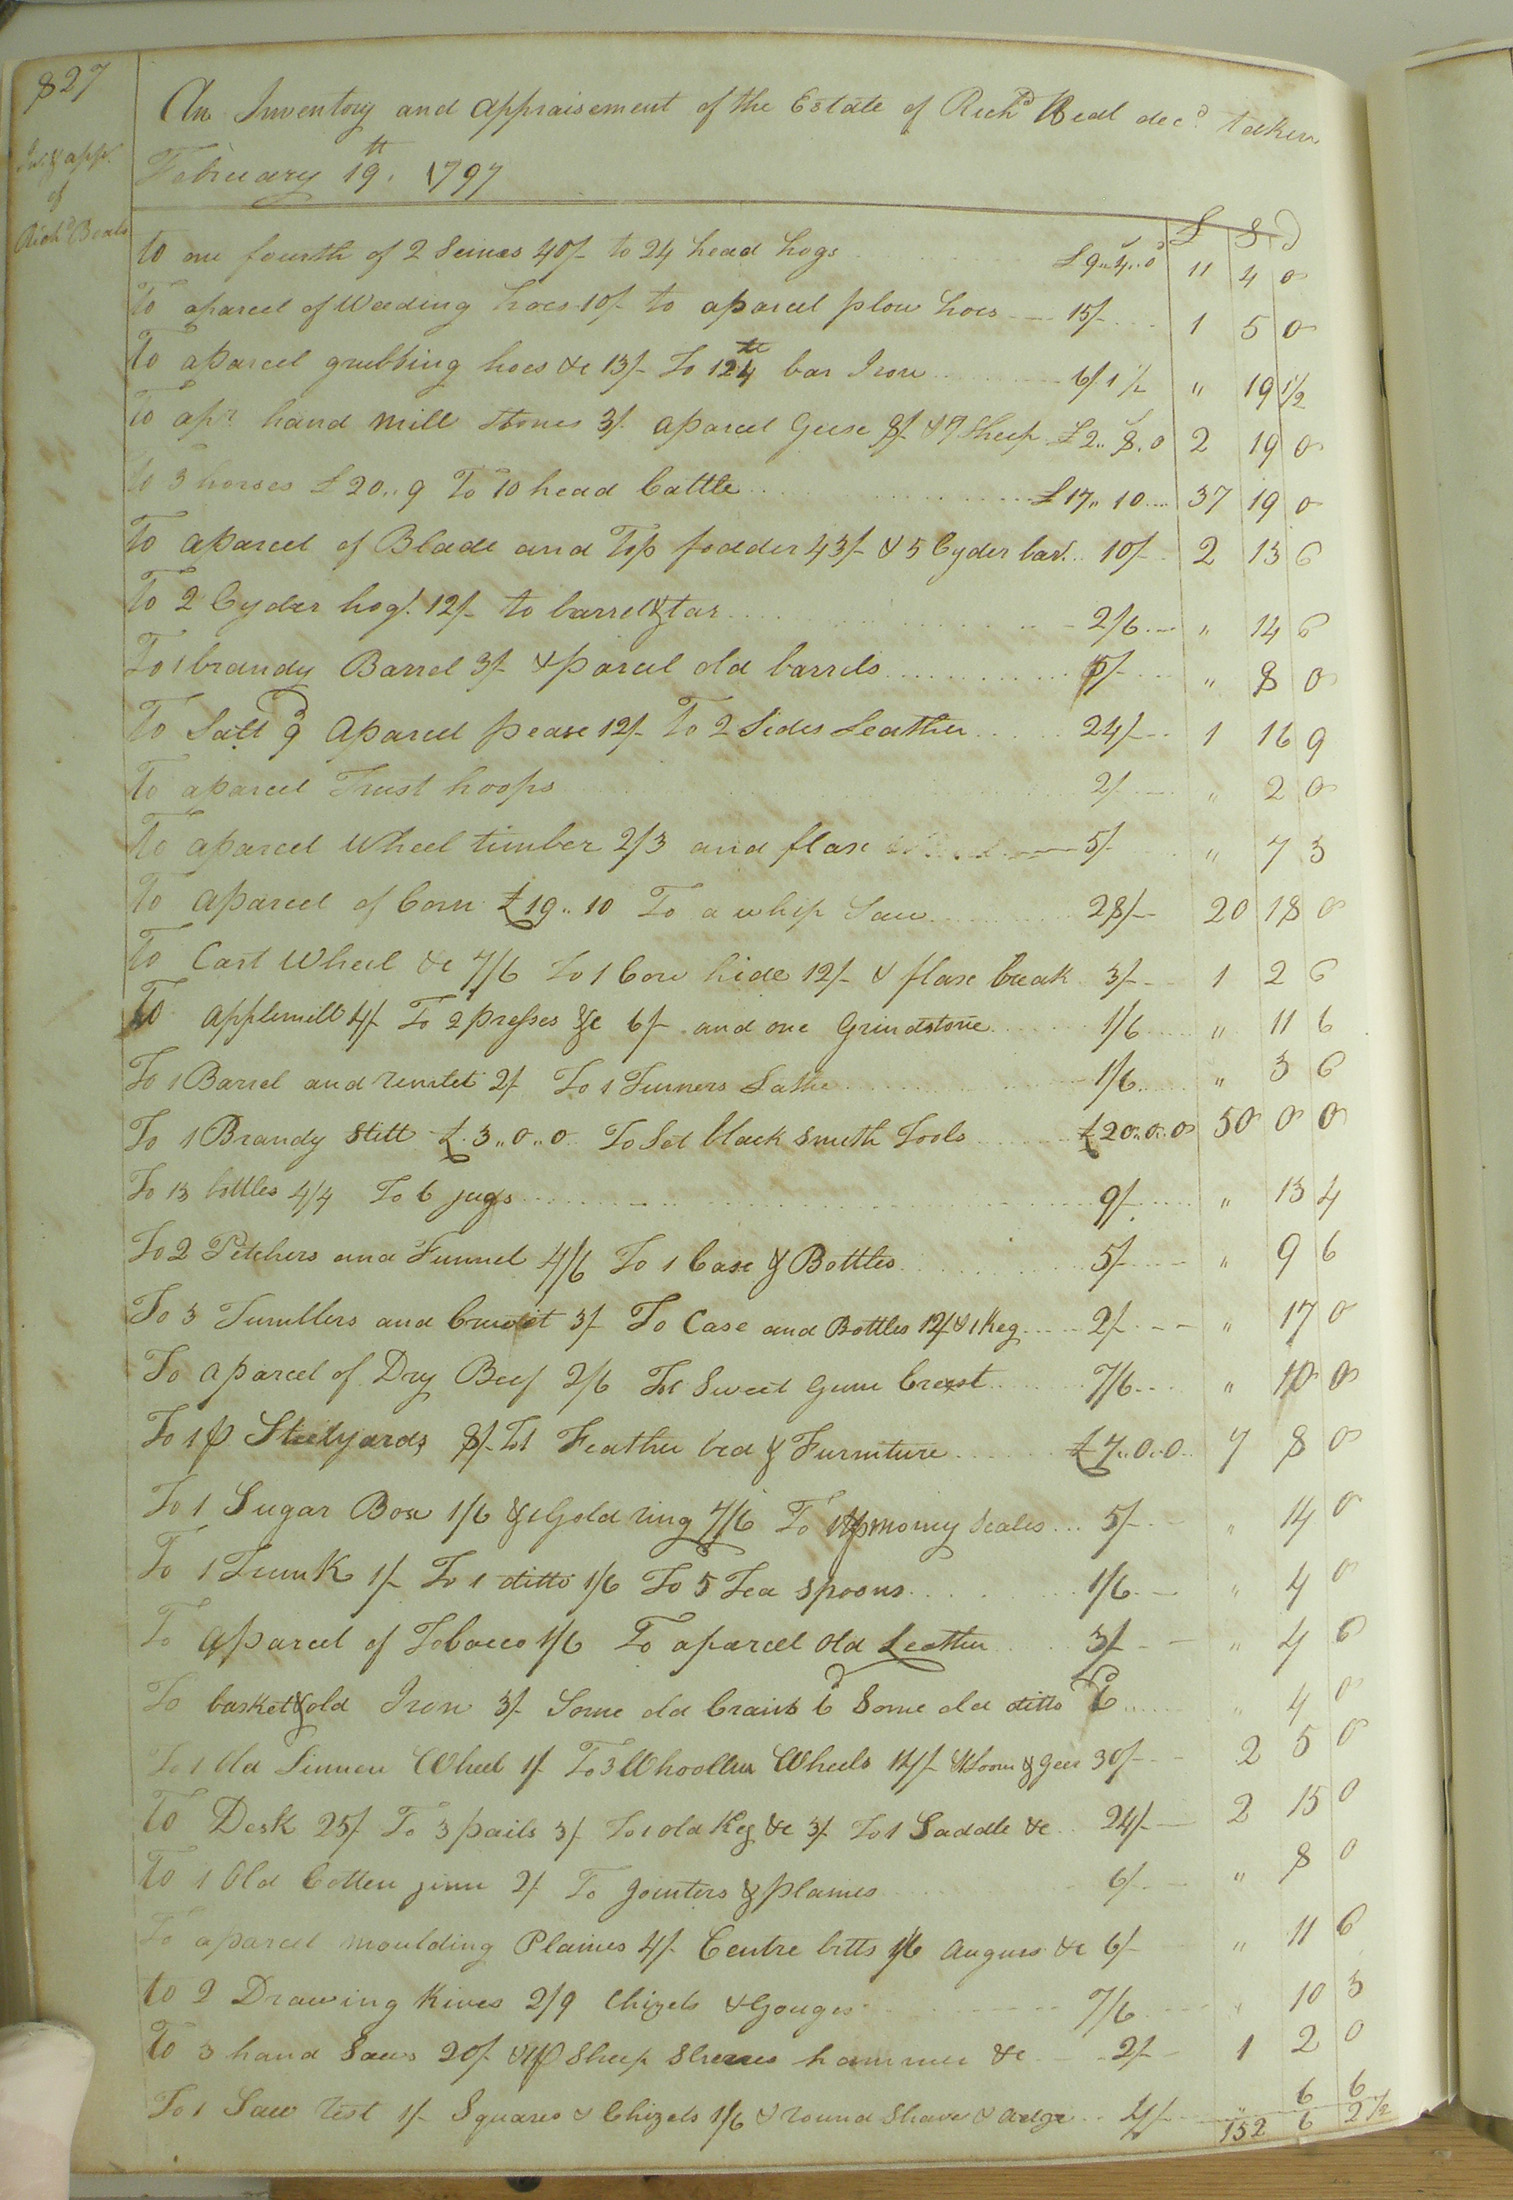 827
An Inventory and appraisement of the Estate of Richd Beal decd taken
February 19th. 1797
Inv. & appt.
of
Richd Beals
£ S D
to one fourth of 2 Seines 40/- to 24 head hogs £9..4..0 11 4 0
To aparcel of Weeding hoes 10/- to aparcel plow hoes 15/- 1 5 0
To aparcel grubbing hoes &c 13/- To 124 bar Iron 6/1½ " 19 1½
To apr. hand mill Stones 3/- aparcel Geese 8/- & 7 Sheep £2..8.0 2 19 0
to 3 horses £20..9 To 10 head Cattle £17..10 37 19 0
To aparcel of Blade and Top fodder 43/- & 5 Cyder bar. 10/- 2 13 6
To 2 Cyder hog/. 12/- to barrel & tar 2/6 " 14 6
To 1 brandy Barrel 3/- & parcel old barrels 5/- " 8 0
To Salt 9d Aparcel pease 12/- To 2 Sides Leather 24/- 1 16 9
To aparcel Trust hoops 2/- " 2 0
To aparcel Wheel timber 2/3 and flax 5/- " 7 3
To aparcel of Corn £19..10 To a whip Saw 28/- 20 18 0
To Cart Wheel &c 7/6 To 1 Cow hide 12/- & flax break 3/- 1 2 6
To Applemill 4/- To 2 presses &c 6/- and one Grindstone 1/6 " 11 6
To 1 Barrel and 2/- To 1 Turners Lathe 1/6 " 3 6
To 1 Brandy Still £.3..0..0 To Set black smith Tools £20..0..0 50 0 0
To 13 bottles 4/4 To 6 jugs 9/- " 13 4
To 2 Pitchers and Funnel 4/6 To 1 Case & Bottles 5/- " 9 6
To 3 Tumblers and Cruet 3/- To Case and Bottles 12/- & 1 Keg 2/- " 17 0
To aparcel of Dry Beef 2/6 To 1 Sweet Gum 7/6 " 10 0
To 1 p Steelyards 8/- To 1 Feather bed & Furniture £7..0..0 7 8 0
To 1 Sugar Box 1/6 & 1 Gold ring 7/6 To 1 p money Scales 5/- " 14 0
To 1 Trunk 1/- To 1 ditto 1/6 To 5 Tea spoons 1/6 " 4 0
To Aparcel of Tobacco 1/6 To aparcel old Leather 3/- " 4 6
To basket & old Iron 3/- Some old 6d Some old ditto 6d " 4 0
To 1 Old Linnen Wheel 1/- To 3 Whoollen Wheels 14/- & Loom & Geer 30/- 2 5 0
To Desk 25/- To 3 pails 3/- To 1 old Keg &c 3/- To 1 Saddle &c 24/- 2 15 0
To 1 Old Cotten ginn 2/- To Jointers & plaines 6/- " 8 0
To aparcel moulding Plaines 4/- Centre bitts 1/6 Augurs &c 6/- " 11 6
to 2 Drawing Knives 2/9 Chizels & Gouges 7/6 " 10 3
To 3 hand Saws 20/- & 1 p Sheep Sheares hammer &c 2/- 1 2 0
To 1 Saw rest 1/- Squares & Chizels 1/6 & round Shave & Adge 4/- " 6 6
152 6 2½